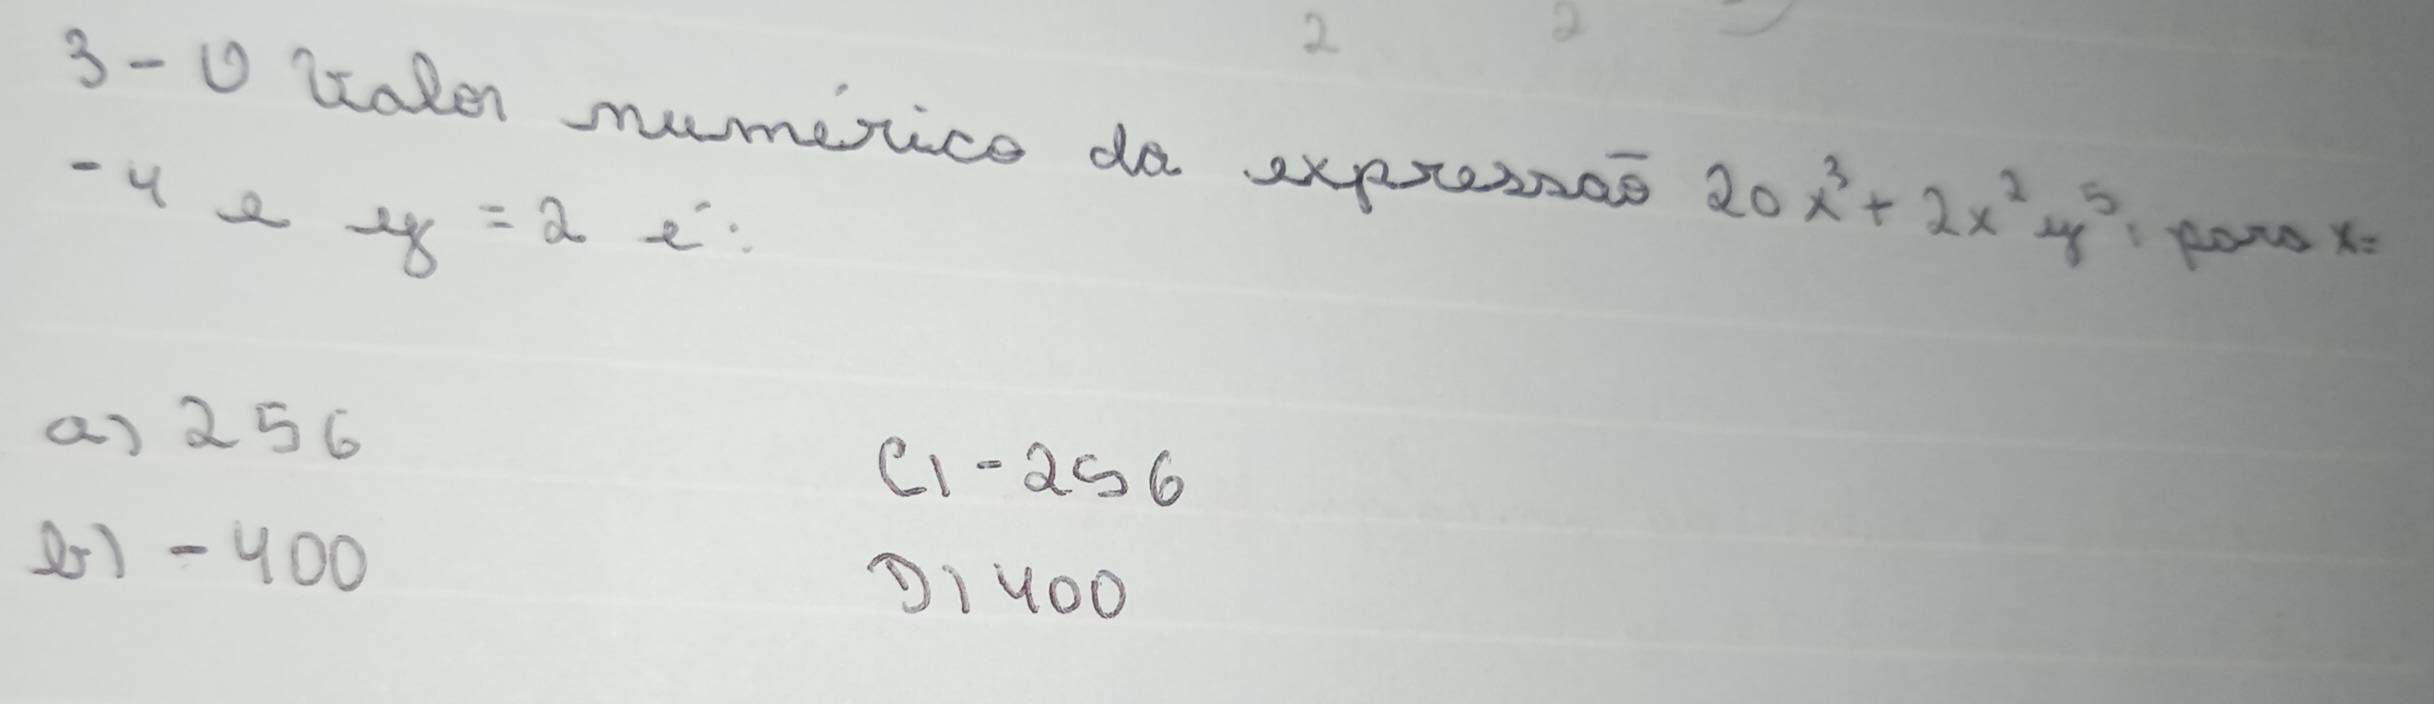 2 2
3 - O Valor numérico da expressão 20x³ + 2x²y⁵, para x=
-4 e y = 2 é:
a) 256
C) -256
b) -400
D) 400